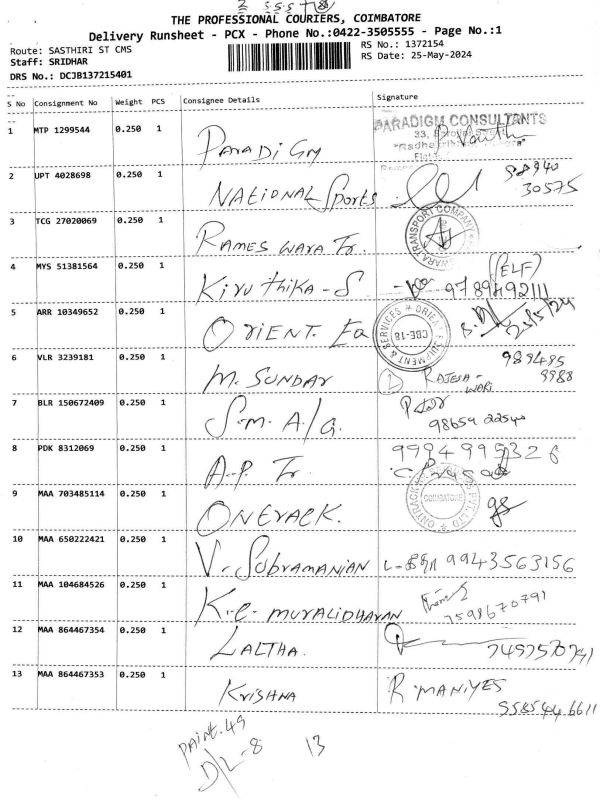 THE PROFESSIONAL COURIERS, COIMBATORE
Delivery Runsheet - PCX - Phone No.:0422-3505555 - Page No.:1
Route: SASTHIRI ST CMS RS No.: 1372154
Staff: SRIDHAR RS Date: 25-May-2024
DRS No.: DCJB137215401
S No Consignment No Weight PCS Consignee Details Signature
PARADIGM CONSULTANTS
1 MTP 1299544 0.250 1 Paradigm
2 UPT 4028698 0.250 1 National Sports 98940
30575
3 TCG 27020069 0.250 1 Rameswara Tr.
4 MYS 51381564 0.250 1 Kiruthika-S (SELF)
9789492111
5 ARR 10349652 0.250 1 Orient. Eq 25/5/24
CBE-18
6 VLR 3239181 0.250 1 M. Sundar Rajesh-wari 989485
9988
7 BLR 150672409 0.250 1 S.M. A/G. 98659 22540
8 PDK 8312069 0.250 1 A.P. Tr. 9994995326
9 MAA 703485114 0.250 1 Onerack.
COIMBATORE
10 MAA 650222421 0.250 1 V. Subramanian 9943563156
11 MAA 104684526 0.250 1 K.C. Muralidharan 7598670791
12 MAA 864467354 0.250 1 Laltha.
13 MAA 864467353 0.250 1 Krishna R. Maniyes
958544 6611
Paint. 49
D/L-8 13